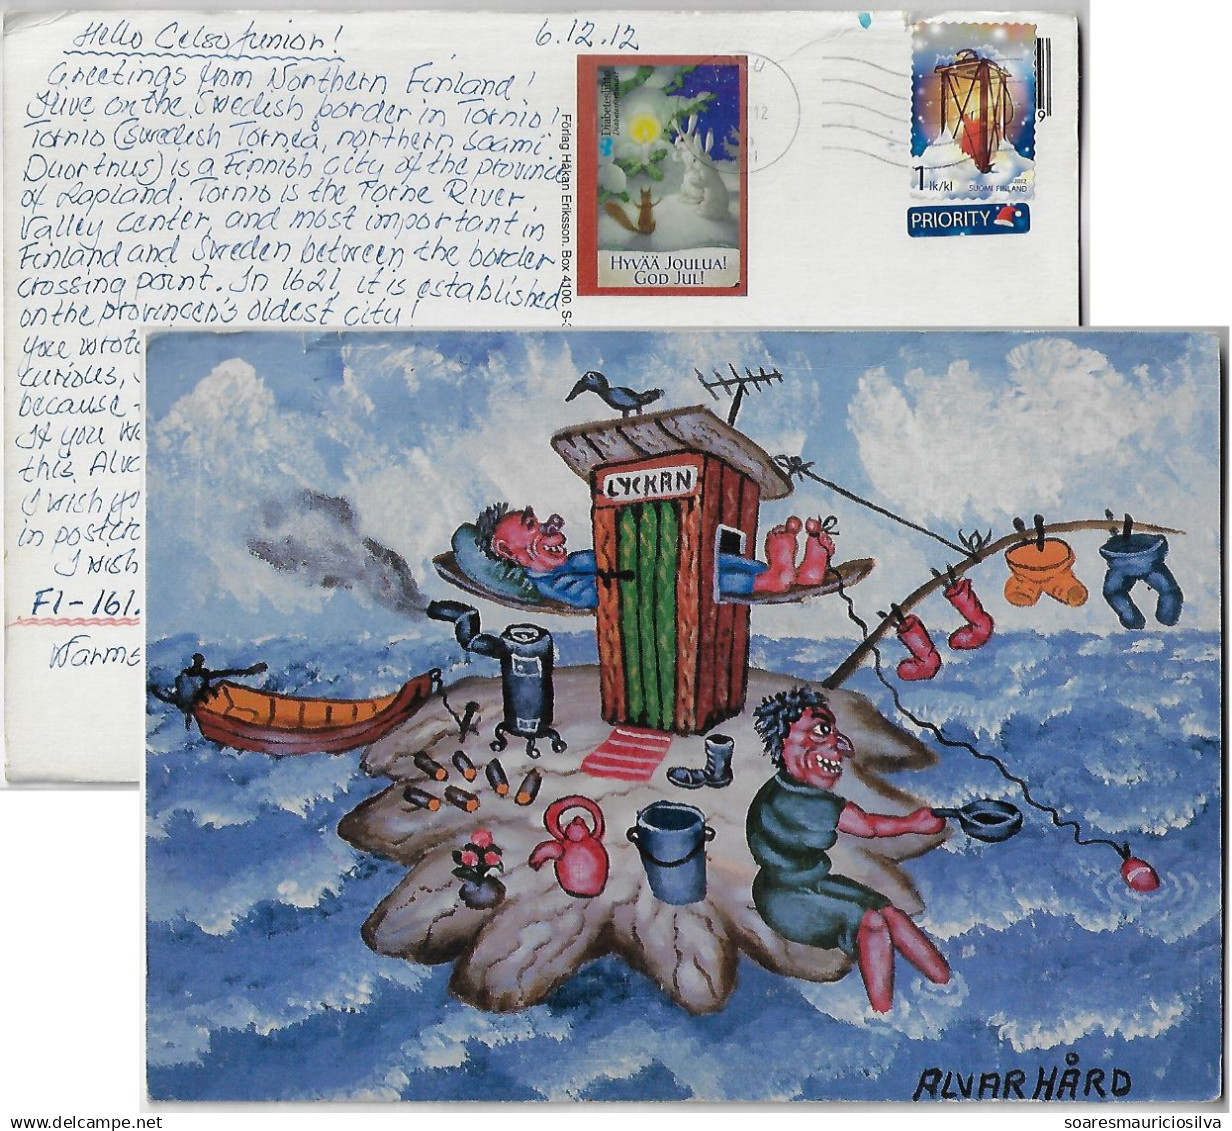 Hello Celso Junior!
6.12.12
Greetings from Northern Finland!
I live on the Swedish border in Tornio!
Tornio (Swedish Torneå, northern Saami
Duortnus) is a Finnish city of the province
of Lapland. Tornio is the Torne River
Valley center, and most important in
Finland and Sweden between the border
crossing point. In 1621, it is established
on the provincen's oldest city!
you wrote
curious,
because
If you
this. Alva
I wish you
in postcr
I wish
FI-161.
Warms
Diabetesliitto
Diabetesförbundet
HYVÄÄ JOULUA!
GOD JUL!
Förlag Håkan Eriksson. Box 4100. S-
12
1 lk/kl
2012
SUOMI FINLAND
PRIORITY
9
LYCKAN
ALVAR HÅRD
soaresmauriciosilva